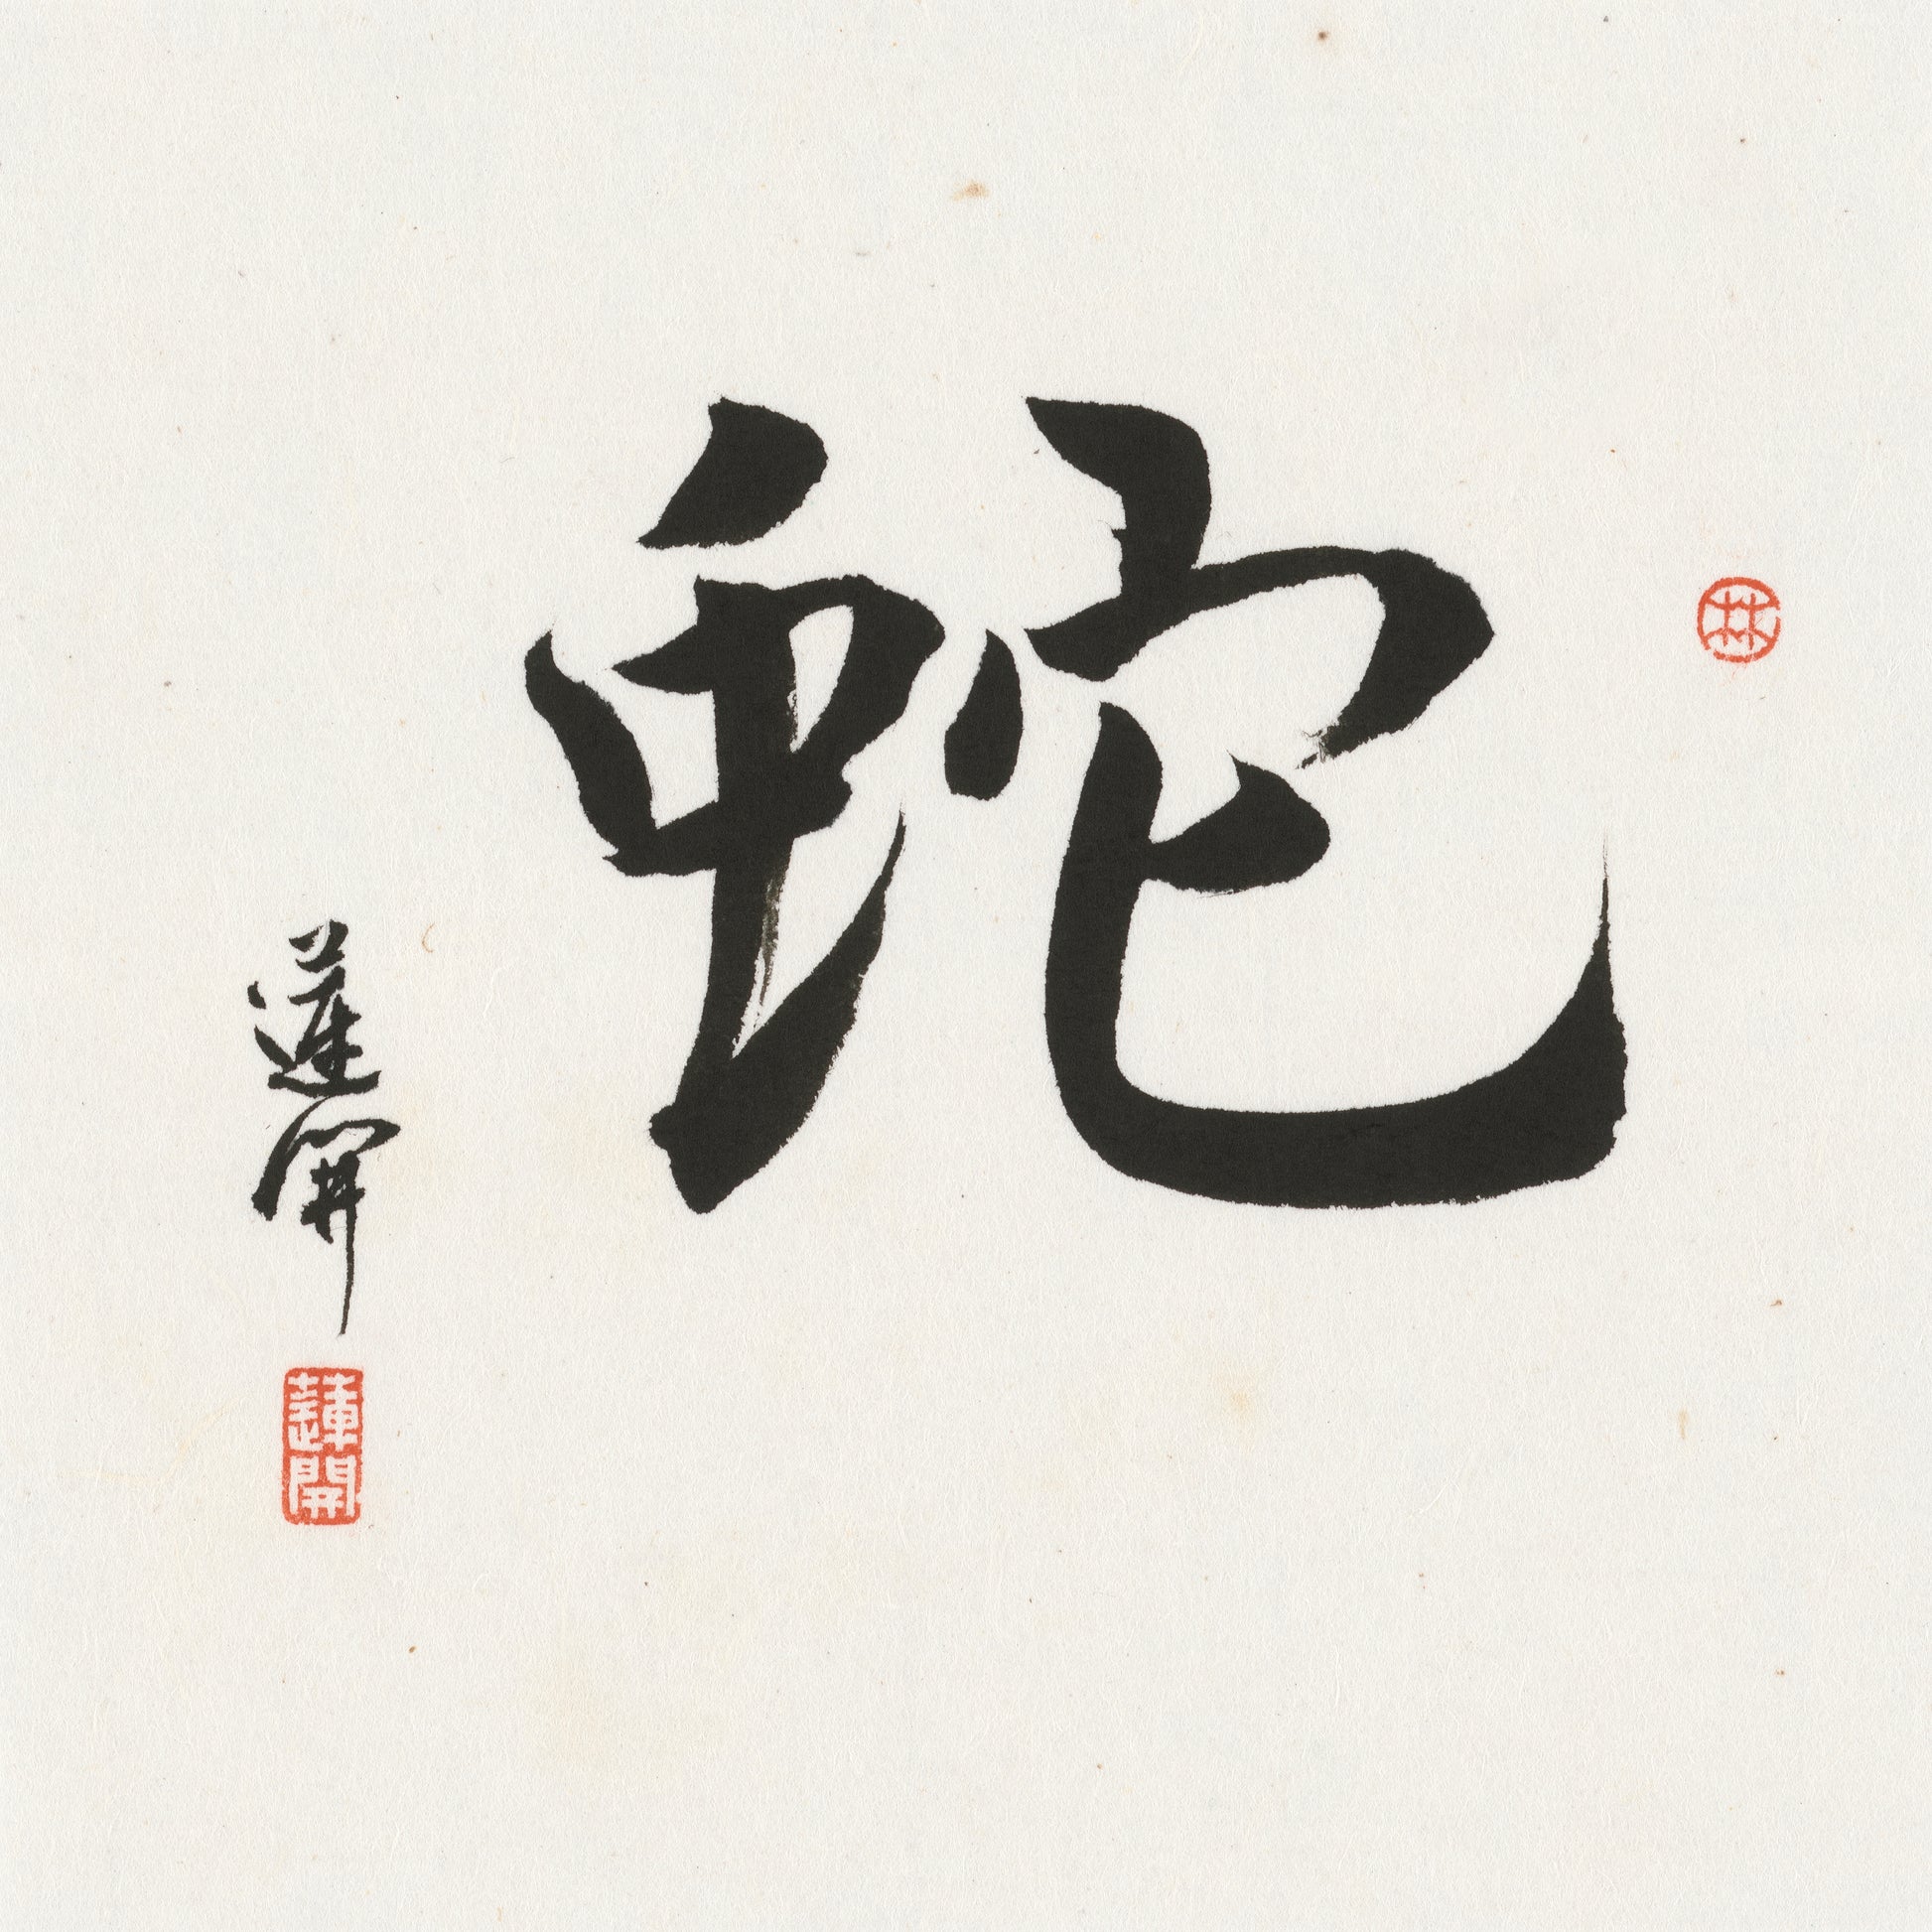 蛇
蓮開
林
蓮開